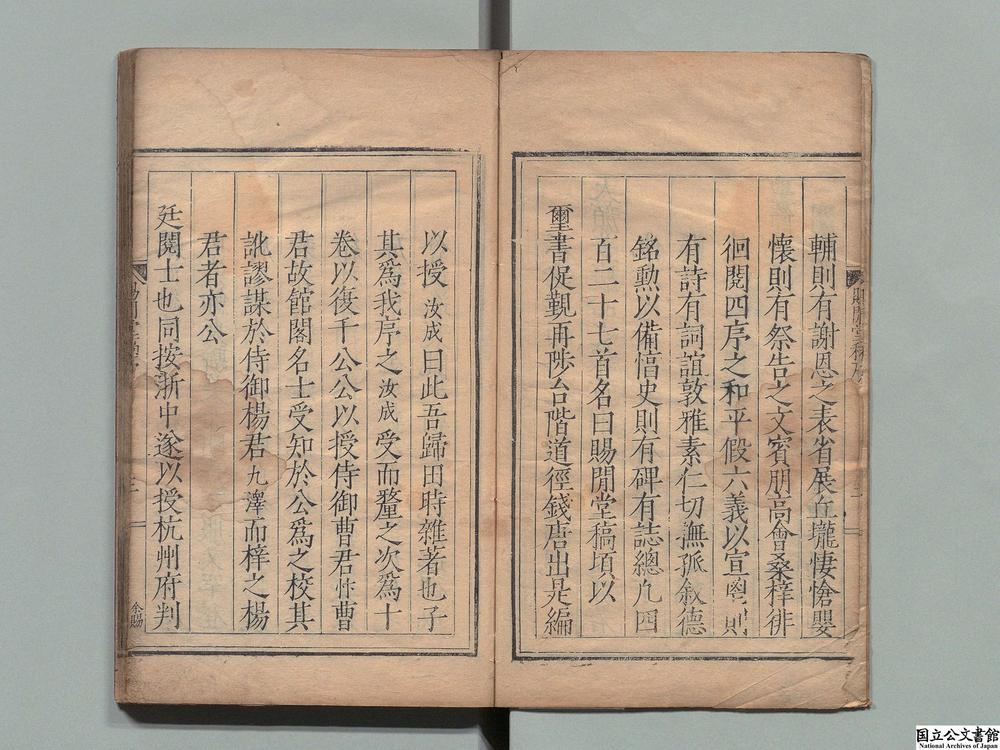 輔則有謝恩之表省展丘壠悽愴嬰
懷則有祭告之文賓朋高會桑梓徘
徊閱四序之和平假六義以宣鬯則
有詩有詞誼敦雅素仁切撫孤敘德
銘勲以備惇史則有碑有誌總凡四
百二十七首名曰賜閒堂稿頃以
璽書促觐再陟台階道徑錢唐出是編
賜閒堂稿序
以授汝成曰此吾歸田時雜著也子
其爲我序之汝成受而釐之次爲十
卷以復千公公以授侍御曹君忭曹
君故館閣名士受知於公爲之校其
訛謬謀於侍御楊君九澤而梓之楊
君者亦公
廷閱士也同按浙中遂以授杭州府判
余賜
国立公文書館
National Archives of Japan